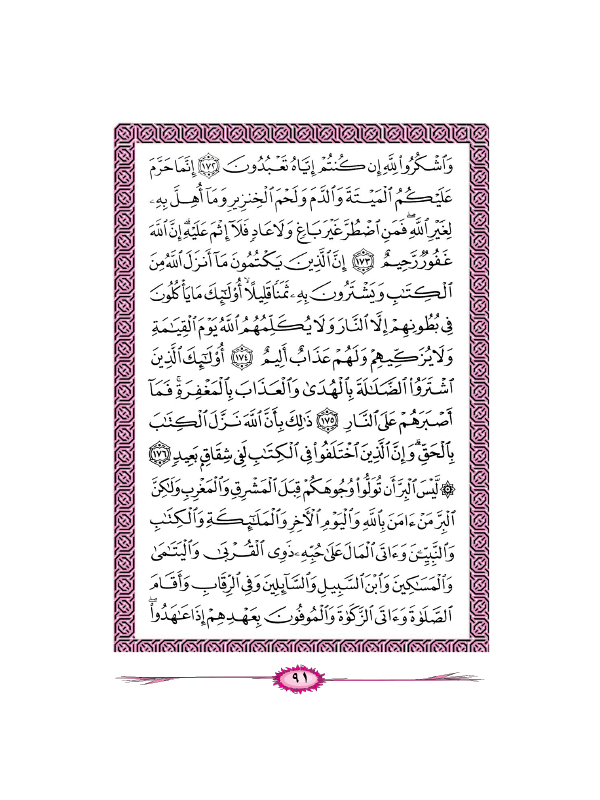 وَٱشْكُرُوا۟ لِلَّهِ إِن كُنتُمْ إِيَّاهُ تَعْبُدُونَ ١٧٢ إِنَّمَا حَرَّمَ
عَلَيْكُمُ ٱلْمَيْتَةَ وَٱلدَّمَ وَلَحْمَ ٱلْخِنزِيرِ وَمَآ أُهِلَّ بِهِۦ
لِغَيْرِ ٱللَّهِ ۖ فَمَنِ ٱضْطُرَّ غَيْرَ بَاغٍ وَلَا عَادٍ فَلَآ إِثْمَ عَلَيْهِ ۚ إِنَّ ٱللَّهَ
غَفُورٌ رَّحِيمٌ ١٧٣ إِنَّ ٱلَّذِينَ يَكْتُمُونَ مَآ أَنزَلَ ٱللَّهُ مِنَ
ٱلْكِتَٰبِ وَيَشْتَرُونَ بِهِۦ ثَمَنًا قَلِيلًا ۙ أُو۟لَٰٓئِكَ مَا يَأْكُلُونَ
فِى بُطُونِهِمْ إِلَّا ٱلنَّارَ وَلَا يُكَلِّمُهُمُ ٱللَّهُ يَوْمَ ٱلْقِيَٰمَةِ
وَلَا يُزَكِّيهِمْ وَلَهُمْ عَذَابٌ أَلِيمٌ ١٧٤ أُو۟لَٰٓئِكَ ٱلَّذِينَ
ٱشْتَرَوُا۟ ٱلضَّلَٰلَةَ بِٱلْهُدَىٰ وَٱلْعَذَابَ بِٱلْمَغْفِرَةِ ۚ فَمَآ
أَصْبَرَهُمْ عَلَى ٱلنَّارِ ١٧٥ ذَٰلِكَ بِأَنَّ ٱللَّهَ نَزَّلَ ٱلْكِتَٰبَ
بِٱلْحَقِّ ۗ وَإِنَّ ٱلَّذِينَ ٱخْتَلَفُوا۟ فِى ٱلْكِتَٰبِ لَفِى شِقَاقٍۭ بَعِيدٍ ١٧٦
۞ لَّيْسَ ٱلْبِرَّ أَن تُوَلُّوا۟ وُجُوهَكُمْ قِبَلَ ٱلْمَشْرِقِ وَٱلْمَغْرِبِ وَلَٰكِنَّ
ٱلْبِرَّ مَنْ ءَامَنَ بِٱللَّهِ وَٱلْيَوْمِ ٱلْءَاخِرِ وَٱلْمَلَٰٓئِكَةِ وَٱلْكِتَٰبِ
وَٱلنَّبِيِّـۧنَ وَءَاتَى ٱلْمَالَ عَلَىٰ حُبِّهِۦ ذَوِى ٱلْقُرْبَىٰ وَٱلْيَتَٰمَىٰ
وَٱلْمَسَٰكِينَ وَٱبْنَ ٱلسَّبِيلِ وَٱلسَّآئِلِينَ وَفِى ٱلرِّقَابِ وَأَقَامَ
ٱلصَّلَوٰةَ وَءَاتَى ٱلزَّكَوٰةَ وَٱلْمُوفُونَ بِعَهْدِهِمْ إِذَا عَٰهَدُوا۟ ۖ
٩١